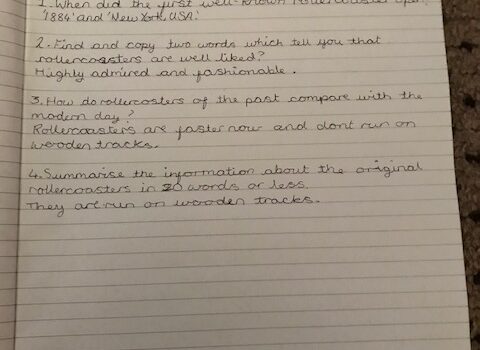 1. When did the first well-known rollercoaster open?
'1884' and 'New York, USA.'
2. Find and copy two words which tell you that
rollercoasters are well liked?
Highly admired and fashionable.
3. How do rollercosters of the past compare with the
modern day?
Rollercoasters are faster now and dont run on
wooden tracks.
4. Summarise the information about the original
rollercoasters in 20 words or less.
They are run on wooden tracks.